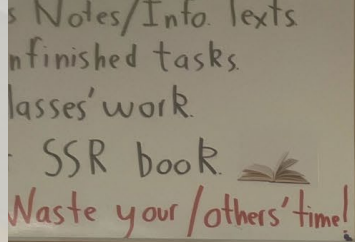 s Notes/Info. Texts.
nfinished tasks.
lasses' work.
- SSR book.
Waste your/others' time!